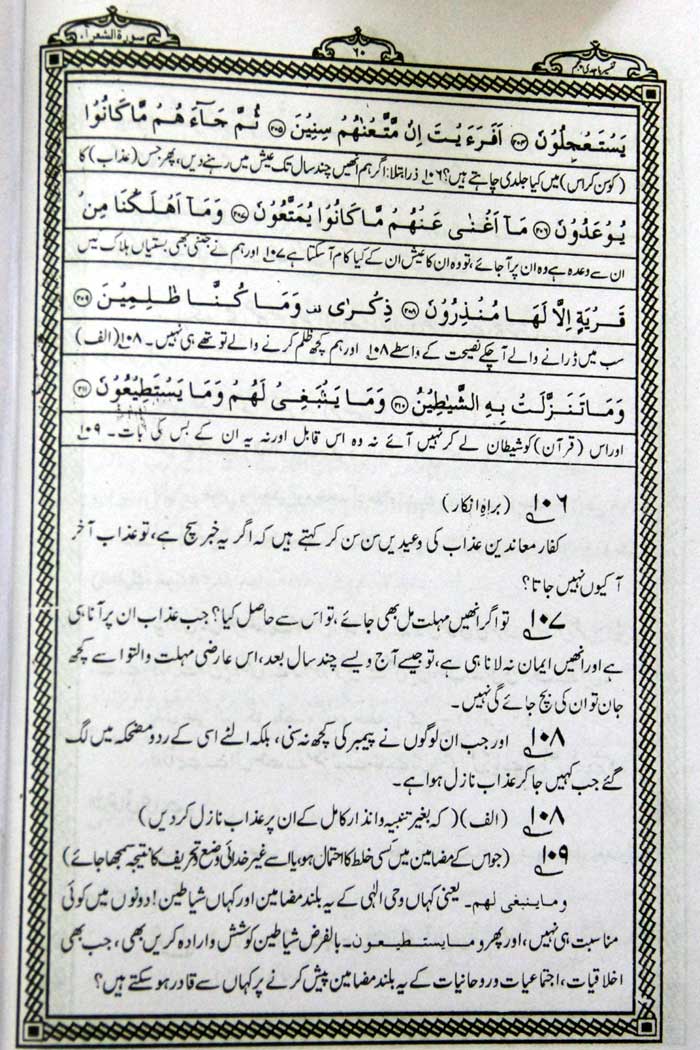 سورة الشعرآء
٦٠
تفسیر ماجدی پنجم
يَسْتَعْجِلُوْنَ ﴿۲۰۴﴾ اَفَرَءَيْتَ اِنْ مَّتَّعْنٰهُمْ سِنِيْنَ ﴿۲۰۵﴾ ثُمَّ جَآءَهُمْ مَّا كَانُوْا
(کو سن کر اس) میں کیا جلدی چاہتے ہیں؟ ۱۰۶ ذرا بتلا: اگر ہم انھیں چند سال تک عیش میں رہنے دیں، پھر جس (عذاب) کا
يُوْعَدُوْنَ ﴿۲۰۶﴾ مَآ اَغْنٰى عَنْهُمْ مَّا كَانُوْا يُمَتَّعُوْنَ ﴿۲۰۷﴾ وَمَآ اَهْلَكْنَا مِنْ
ان سے وعدہ ہے وہ ان پر آجائے، تو وہ ان کا عیش ان کے کیا کام آسکتا ہے ۱۰۷ اور ہم نے جتنی بھی بستیاں ہلاک کیں
قَرْيَةٍ اِلَّا لَهَا مُنْذِرُوْنَ ﴿۲۰۸﴾ ذِكْرٰى ۛ وَمَا كُنَّا ظٰلِمِيْنَ ﴿۲۰۹﴾
سب میں ڈرانے والے آچکے نصیحت کے واسطے ۱۰۸ اور ہم کچھ ظلم کرنے والے تو تھے ہی نہیں۔ ۱۰۸ (الف)
وَمَا تَنَزَّلَتْ بِهِ الشَّيٰطِيْنُ ﴿۲۱۰﴾ وَمَا يَنْۢبَغِىْ لَهُمْ وَمَا يَسْتَطِيْعُوْنَ ﴿۲۱۱﴾
اور اس (قرآن) کو شیطان لے کر نہیں آئے نہ وہ اس قابل اور نہ یہ ان کے بس کی بات۔ ۱۰۹
۱۰۶ (براہِ انکار)
کفار معاندین عذاب کی وعیدیں سن سن کر کہتے ہیں کہ اگر یہ خبر سچ ہے، تو عذاب آخر
آ کیوں نہیں جاتا؟
۱۰۷ تو اگر انھیں مہلت مل بھی جائے، تو اس سے حاصل کیا؟ جب عذاب ان پر آنا ہی
ہے اور انھیں ایمان نہ لانا ہی ہے، تو جیسے آج ویسے چند سال بعد، اس عارضی مہلت والتوا سے کچھ
جان تو ان کی بچ جائے گی نہیں۔
۱۰۸ اور جب ان لوگوں نے پیمبر کی کچھ نہ سنی، بلکہ الٹے اسی کے رد و مضحکہ میں لگ
گئے جب کہیں جا کر عذاب نازل ہوا ہے۔
۱۰۸ (الف) (کہ بغیر تنبیہ و انذار کامل کے ان پر عذاب نازل کر دیں)
۱۰۹ (جو اس کے مضامین میں کسی خلط کا احتمال ہو، یا اسے غیر خدائی وضع و تحریف کا نتیجہ سمجھا جائے)
وما ینبغی لھم۔ یعنی کہاں وحی الٰہی کے یہ بلند مضامین اور کہاں شیاطین! دونوں میں کوئی
مناسبت ہی نہیں، اور پھر وما یستطیعون۔ بالفرض شیاطین کوشش و ارادہ کریں بھی، جب بھی
اخلاقیات، اجتماعیات و روحانیات کے یہ بلند مضامین پیش کرنے پر کہاں سے قادر ہو سکتے ہیں؟